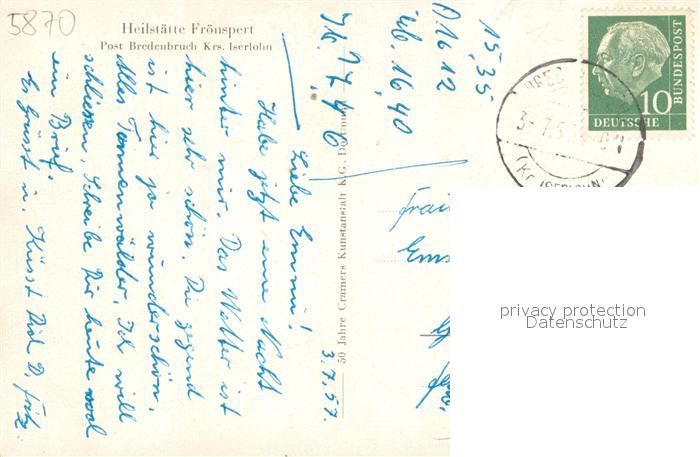 5870
Heilstätte Frönspert
Post Bredenbruch Krs. Iserlohn
3.7.57.
Liebe Emmi!
Habe jetzt eine Nacht
hinter mir. Das Wetter ist
hier sehr schön. Die Gegend
ist hier ja wunderschön.
Alles Tannenwälder. Ich will
schliessen, Schreibe Dir heute wohl
ein Brief.
Es Grüsst u. Küsst Dich D. Fritz
50 Jahre Cramers Kunstanstalt K.G., Dortmund
15,35
D 16 12
üb. 16,40
17,46
Frau
3. 7.5
(KR. ISERLOHN)
DEUTSCHE
BUNDESPOST
10
privacy protection
Datenschutz